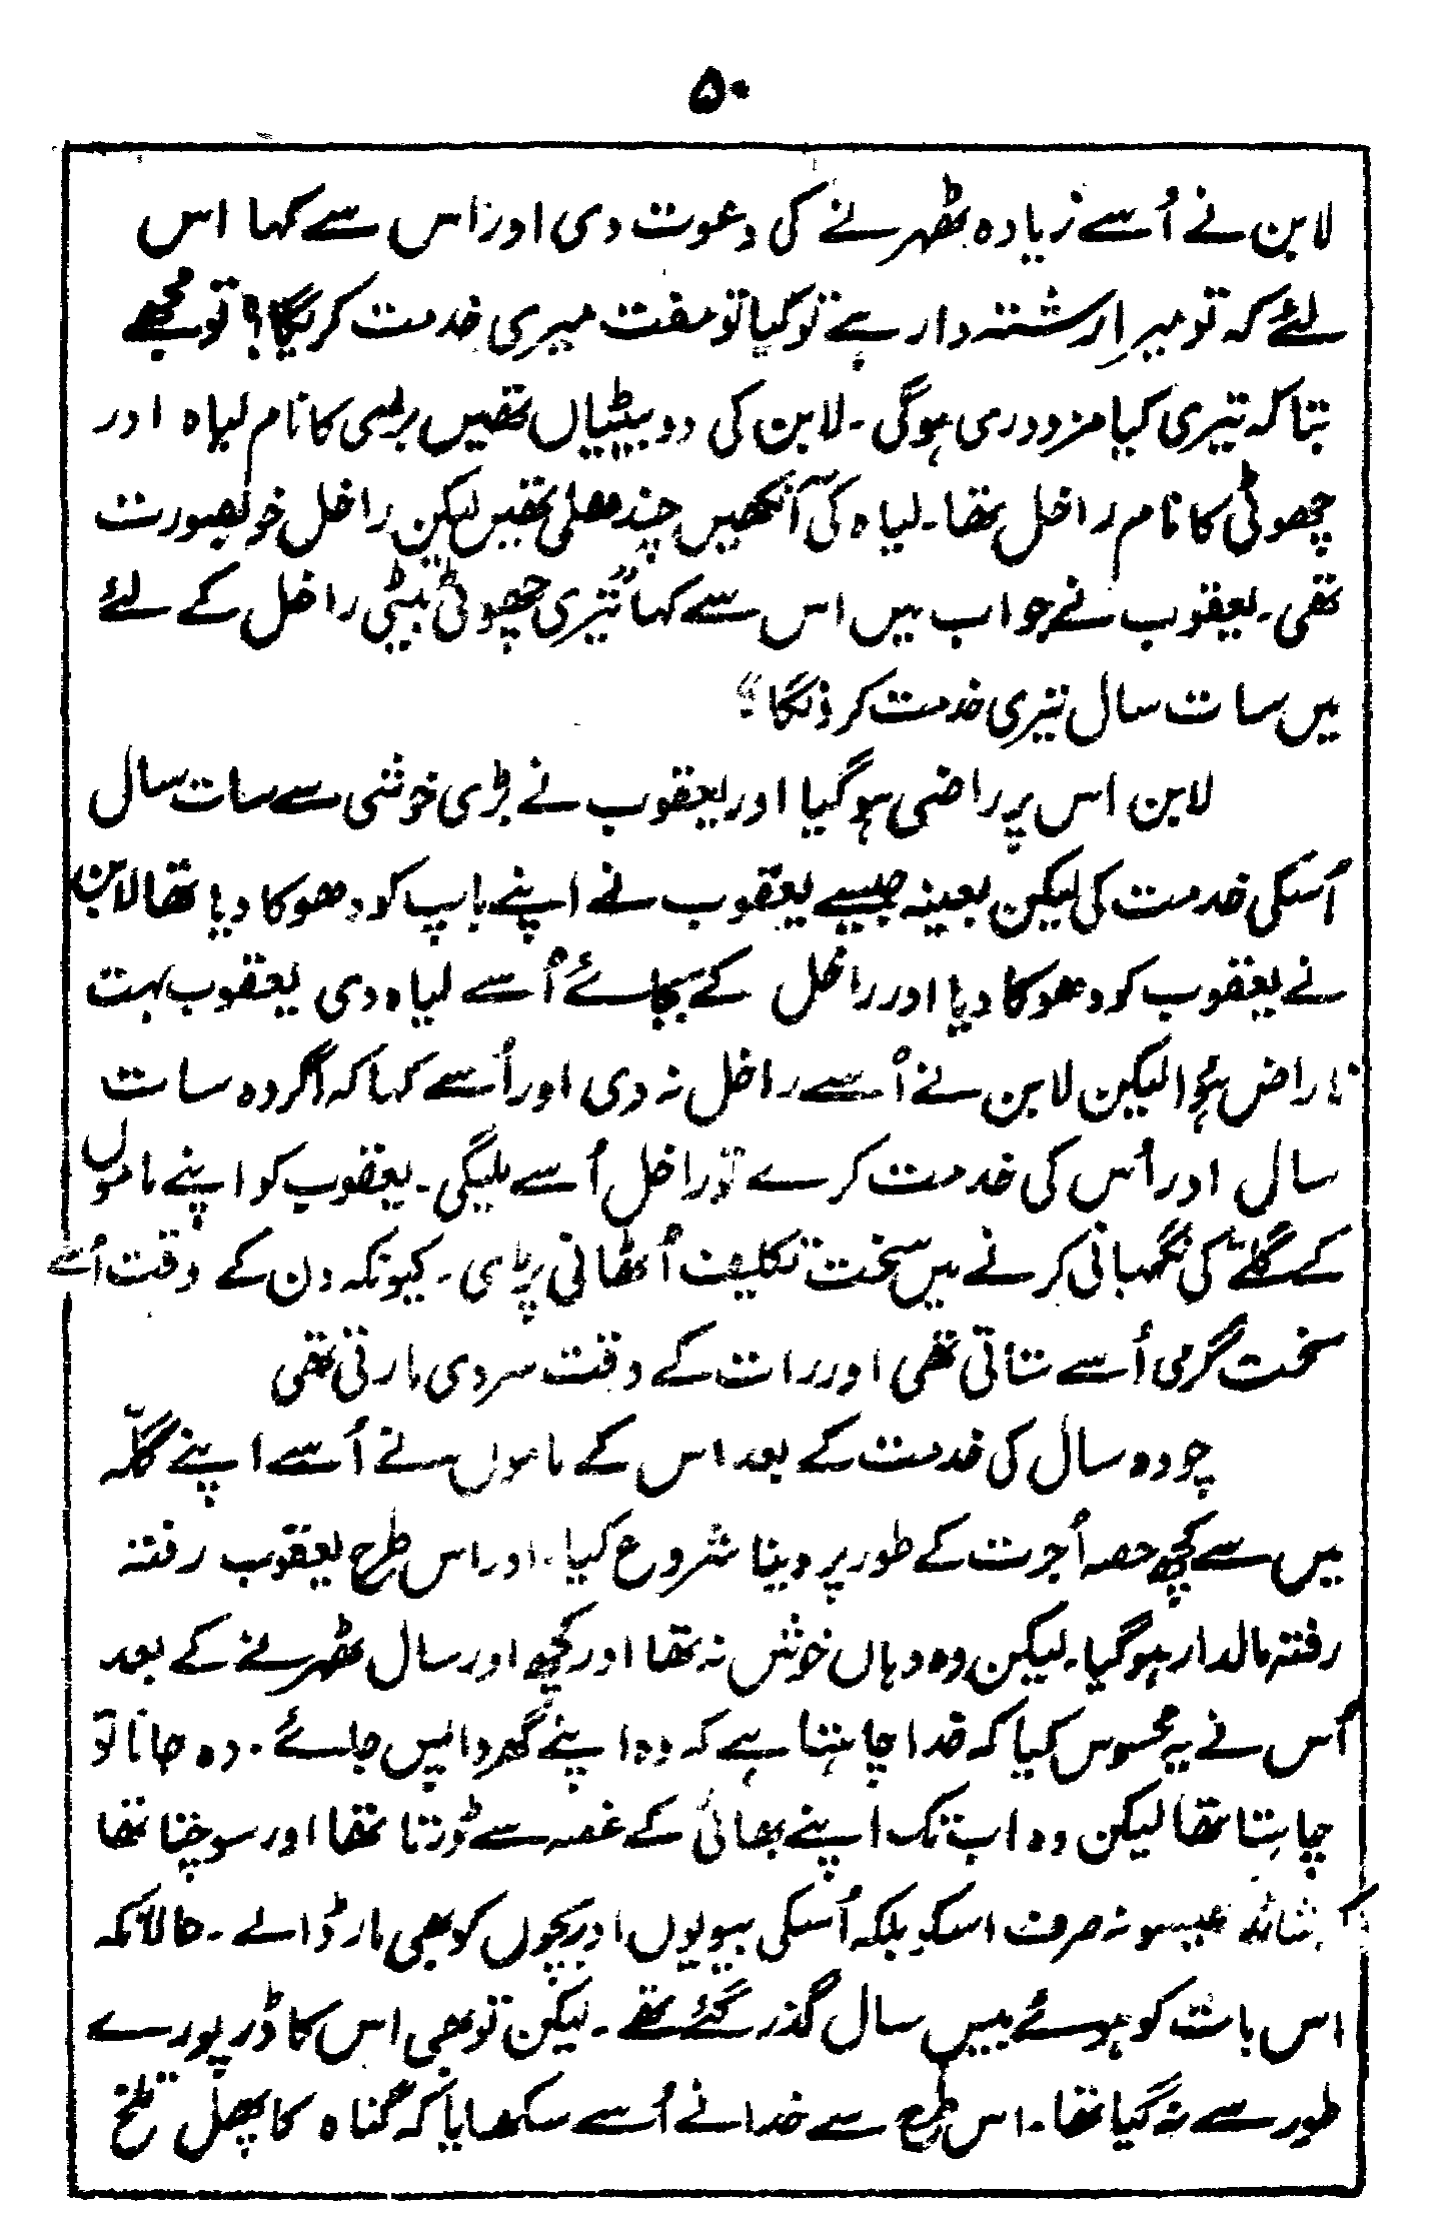 ۵۰
لابن نے اُسے زیادہ ٹھہرنے کی دعوت دی اور اس سے کہا اس
لئے کہ تو میرا رشتہ دار ہے تو کیا تو مفت میری خدمت کریگا؟ تو مجھے
بتا کہ تیری کیا مزدوری ہوگی۔ لابن کی دو بیٹیاں تھیں بڑی کا نام لیاہ اور
چھوٹی کا نام راخل تھا۔ لیاہ کی آنکھیں چندھلی تھیں لیکن راخل خوبصورت
تھی۔ یعقوب نے جواب میں اس سے کہا "تیری چھوٹی بیٹی راخل کے لئے
میں سات سال تیری خدمت کرونگا"
لابن اس پر راضی ہوگیا اور یعقوب نے بڑی خوشی سے سات سال
اُسکی خدمت کی لیکن بعینہ جیسے یعقوب نے اپنے باپ کو دھوکا دیا تھا لابن
نے یعقوب کو دھوکا دیا اور راخل کے بجائے اُسے لیاہ دی یعقوب بہت
ناراض ہوا لیکن لابن نے اُسے راخل نہ دی اور اُسے کہا کہ اگر وہ سات
سال اور اُس کی خدمت کرے تو راخل اُسے ملیگی۔ یعقوب کو اپنے ماموں
کے گلے کی نگہبانی کرنے میں سخت تکلیف اُٹھانی پڑی۔ کیونکہ دن کے وقت اُسے
سخت گرمی اُسے ستاتی تھی اور رات کے وقت سردی مارتی تھی
چودہ سال کی خدمت کے بعد اس کے ماموں نے اُسے اپنے گلّہ
میں سے کچھ حصہ اُجرت کے طور پر دینا شروع کیا۔ اور اس طرح یعقوب رفتہ
رفتہ مالدار ہوگیا۔ لیکن وہ وہاں خوش نہ تھا اور کچھ اور سال ٹھہرنے کے بعد
اُس نے یہ محسوس کیا کہ خدا چاہتا ہے کہ وہ اپنے گھر واپس جائے۔ وہ جانا تو
چاہتا تھا لیکن وہ اب تک اپنے بھائی کے غصہ سے ڈرتا تھا اور سوچتا تھا
کہ شائد عیسو نہ صرف اسکو بلکہ اُسکی بیویوں اور بچوں کو بھی مار ڈالے۔ حالانکہ
اس بات کو ہوئے بیس سال گذر گئے تھے۔ لیکن تو بھی اس کا ڈر پورے
طور سے نہ گیا تھا۔ اس طرح سے خدا نے اُسے سکھایا کہ گناہ کا پھل تلخ